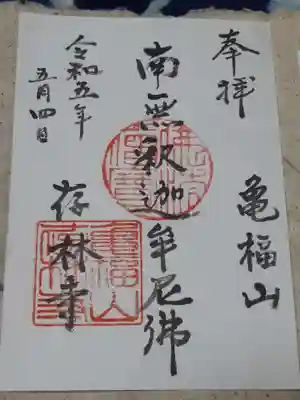 奉拝
亀福山
南無釈迦牟尼佛
存林寺
令和五年
五月四日